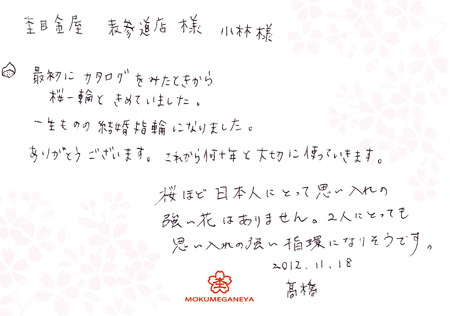 杢目金屋 表参道店 様 小林様
最初に カタログをみたときから
桜一輪ときめていました。
一生ものの結婚指輪になりました。
ありがとうございます。これから何十年と大切に使っていきます。
桜ほど日本人にとって思い入れの
強い花はありません。2人にとっても
思い入れの強い指環になりそうです。
2012.11.18
高橋
MOKUMEGANEYA